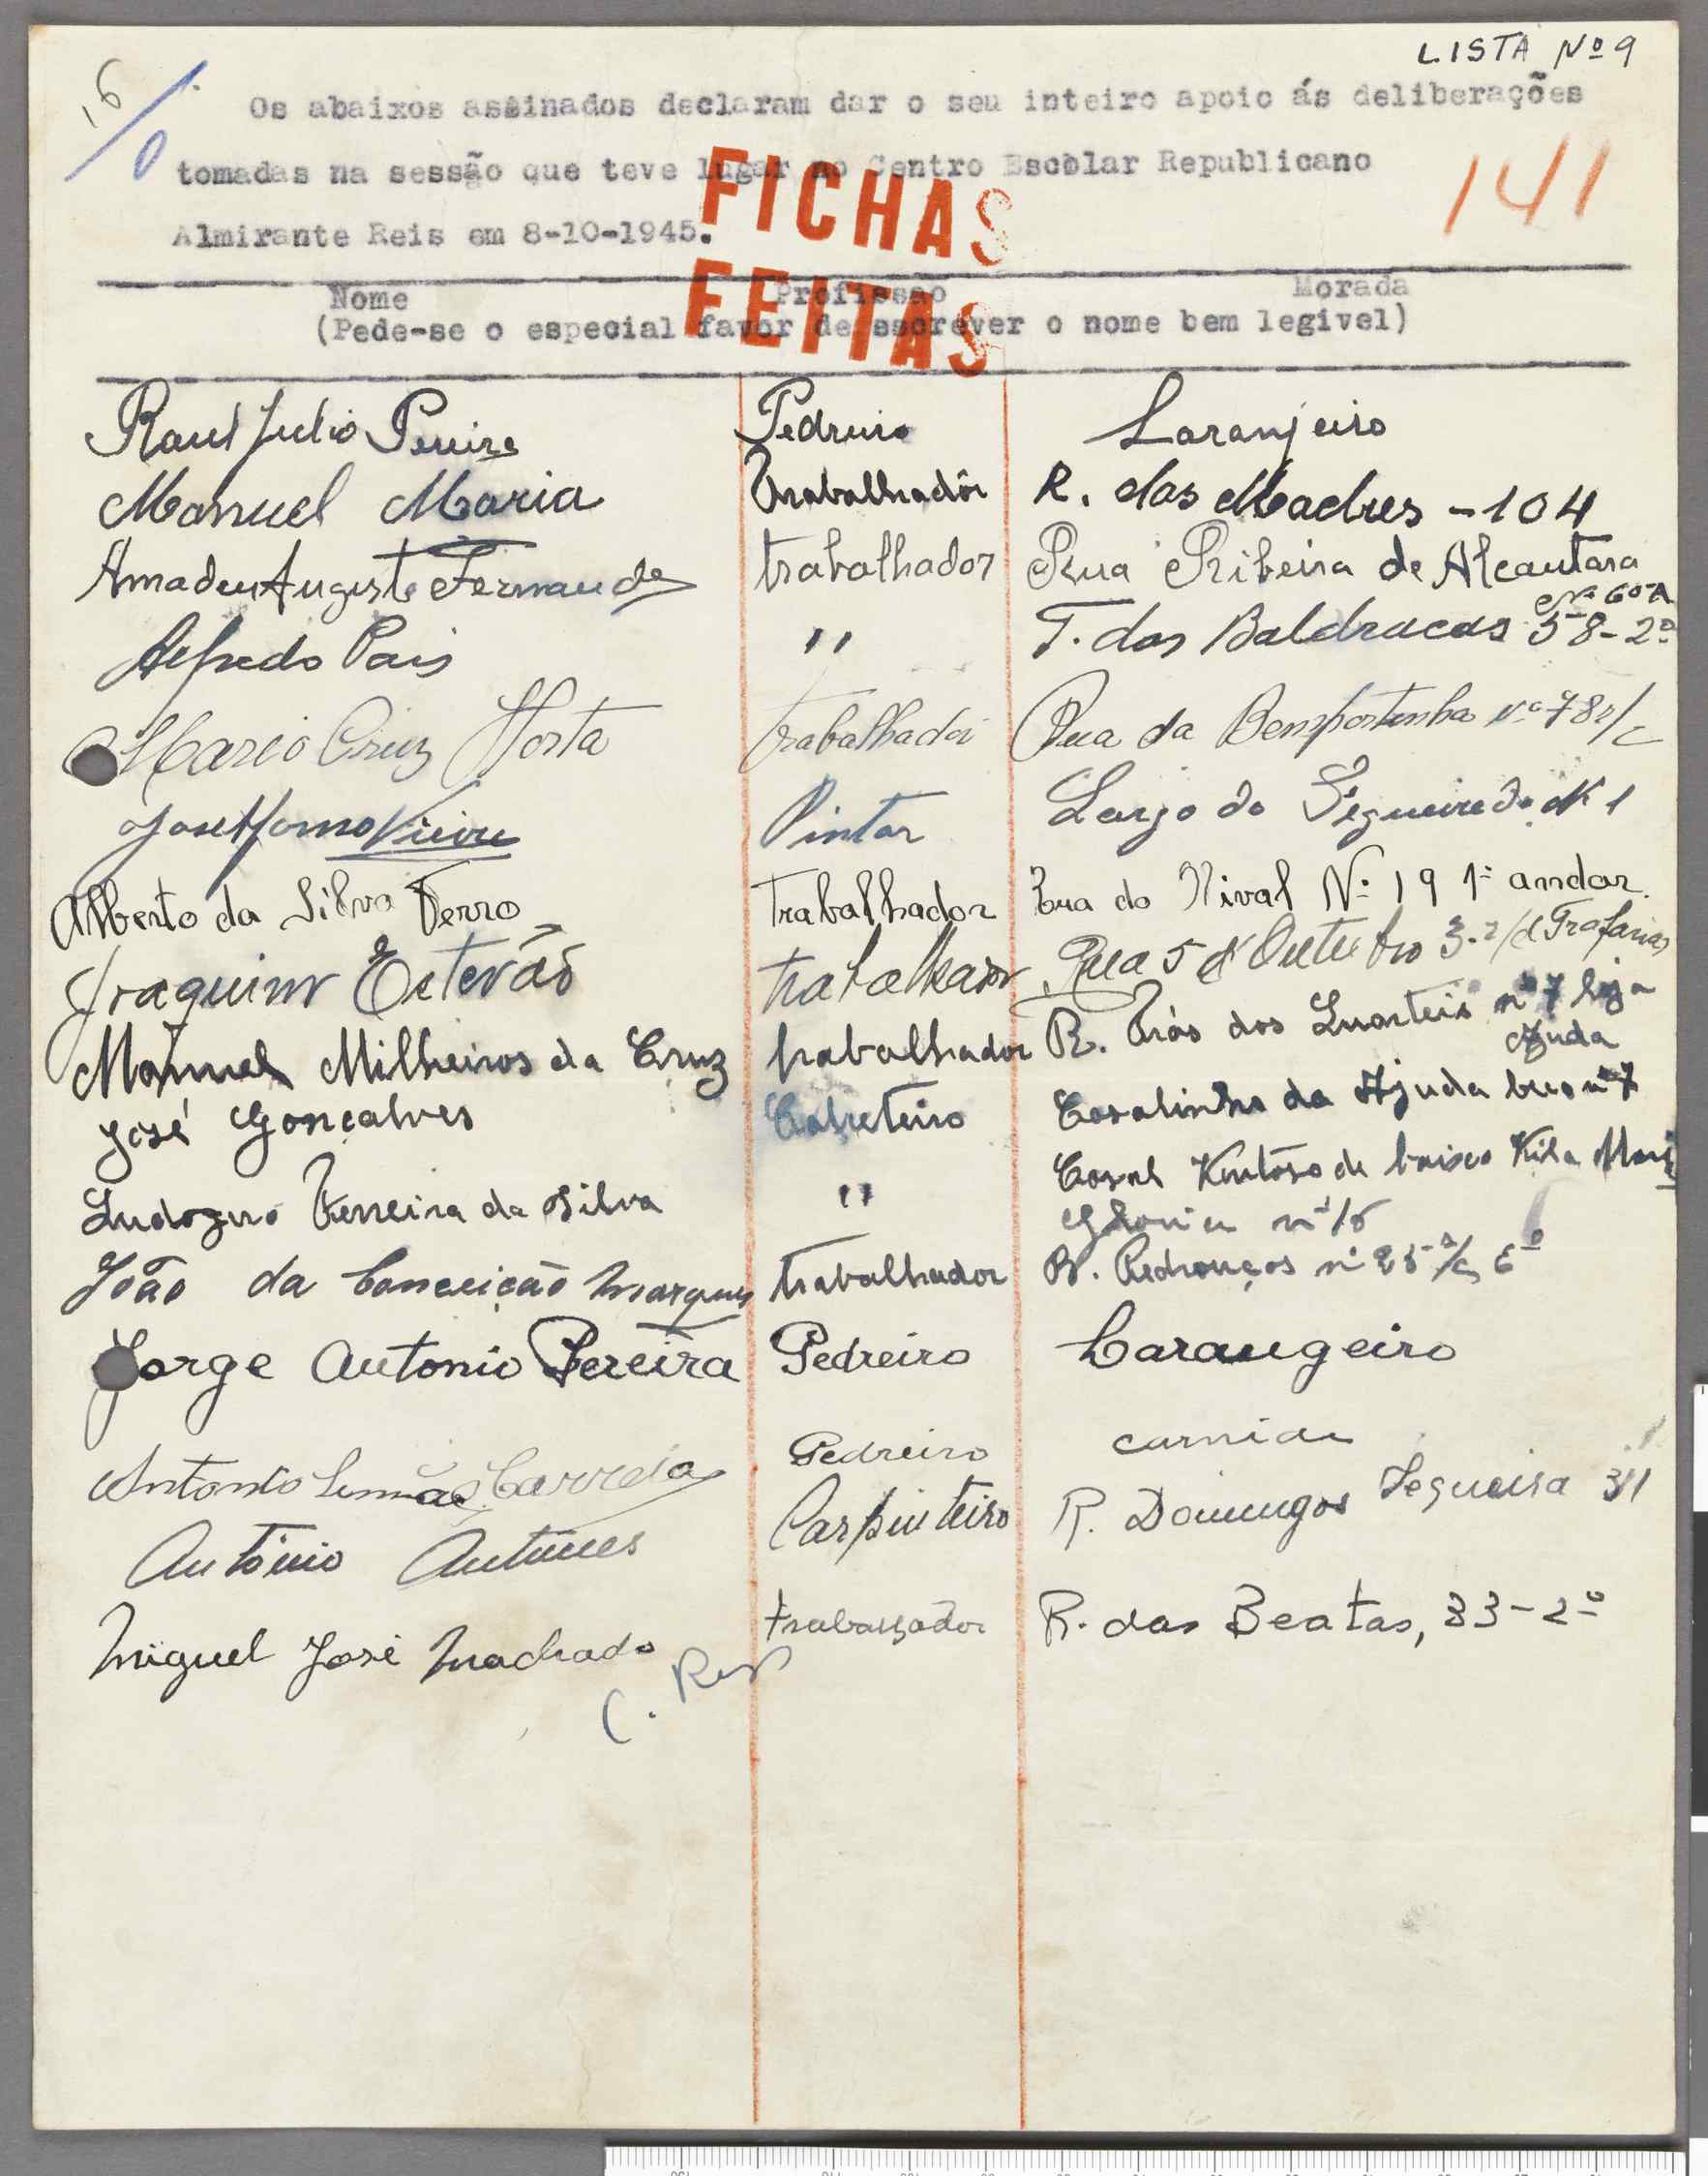 LISTA Nº 9
16
0
Os abaixos assinados declaram dar o seu inteiro apoio ás deliberações
141
tomadas na sessão que teve lugar no Centro Escolar Republicano
Almirante Reis em 8-10-1945.
FICHAS
FEITAS
Nome Profissão Morada
(Pede-se o especial favor de escrever o nome bem legivel)
Raul Julio Pereira Pedreiro Laranjeiro
Manuel Maria Trabalhadôr R. das Madres - 104
Amadeu Augusto Fernandes trabalhador Rua Ribeira de Alcantara
Nº 60-A
Alfredo Pais " T. das Baldracas 58-2º
Mario Cruz Horta trabalhador Rua da Bempostinha Nº 78 r/c
José Vieira Pintor Largo do Sequeira Nº 1
Alberto da Silva Ferro Trabalhador Rua do Nº 19 1º andar
Joaquim Estevão trabalhador Rua 5 d' Outubro 3-r/c Trafaria
Manuel Milheiros da Cruz trabalhador R. Trás dos Quarteis nº 7 loja
Ajuda
José Gonçalves Calceteiro Casalinho da Ajuda nº 7
Ferreira da Silva " Casal Ventoso de baixo Vila Maria
Gloria nº 16
João da Conceição Marques trabalhador R. Pedrouços nº 25 r/c Eº
Jorge Antonio Pereira Pedreiro Laraugeiro
Antonio Carreia Pedreiro carnide
António Antunes Carpinteiro R. Domingos Sequeira 311
Miguel José Machado trabalhador R. das Beatas, 33-2º
C. Rep